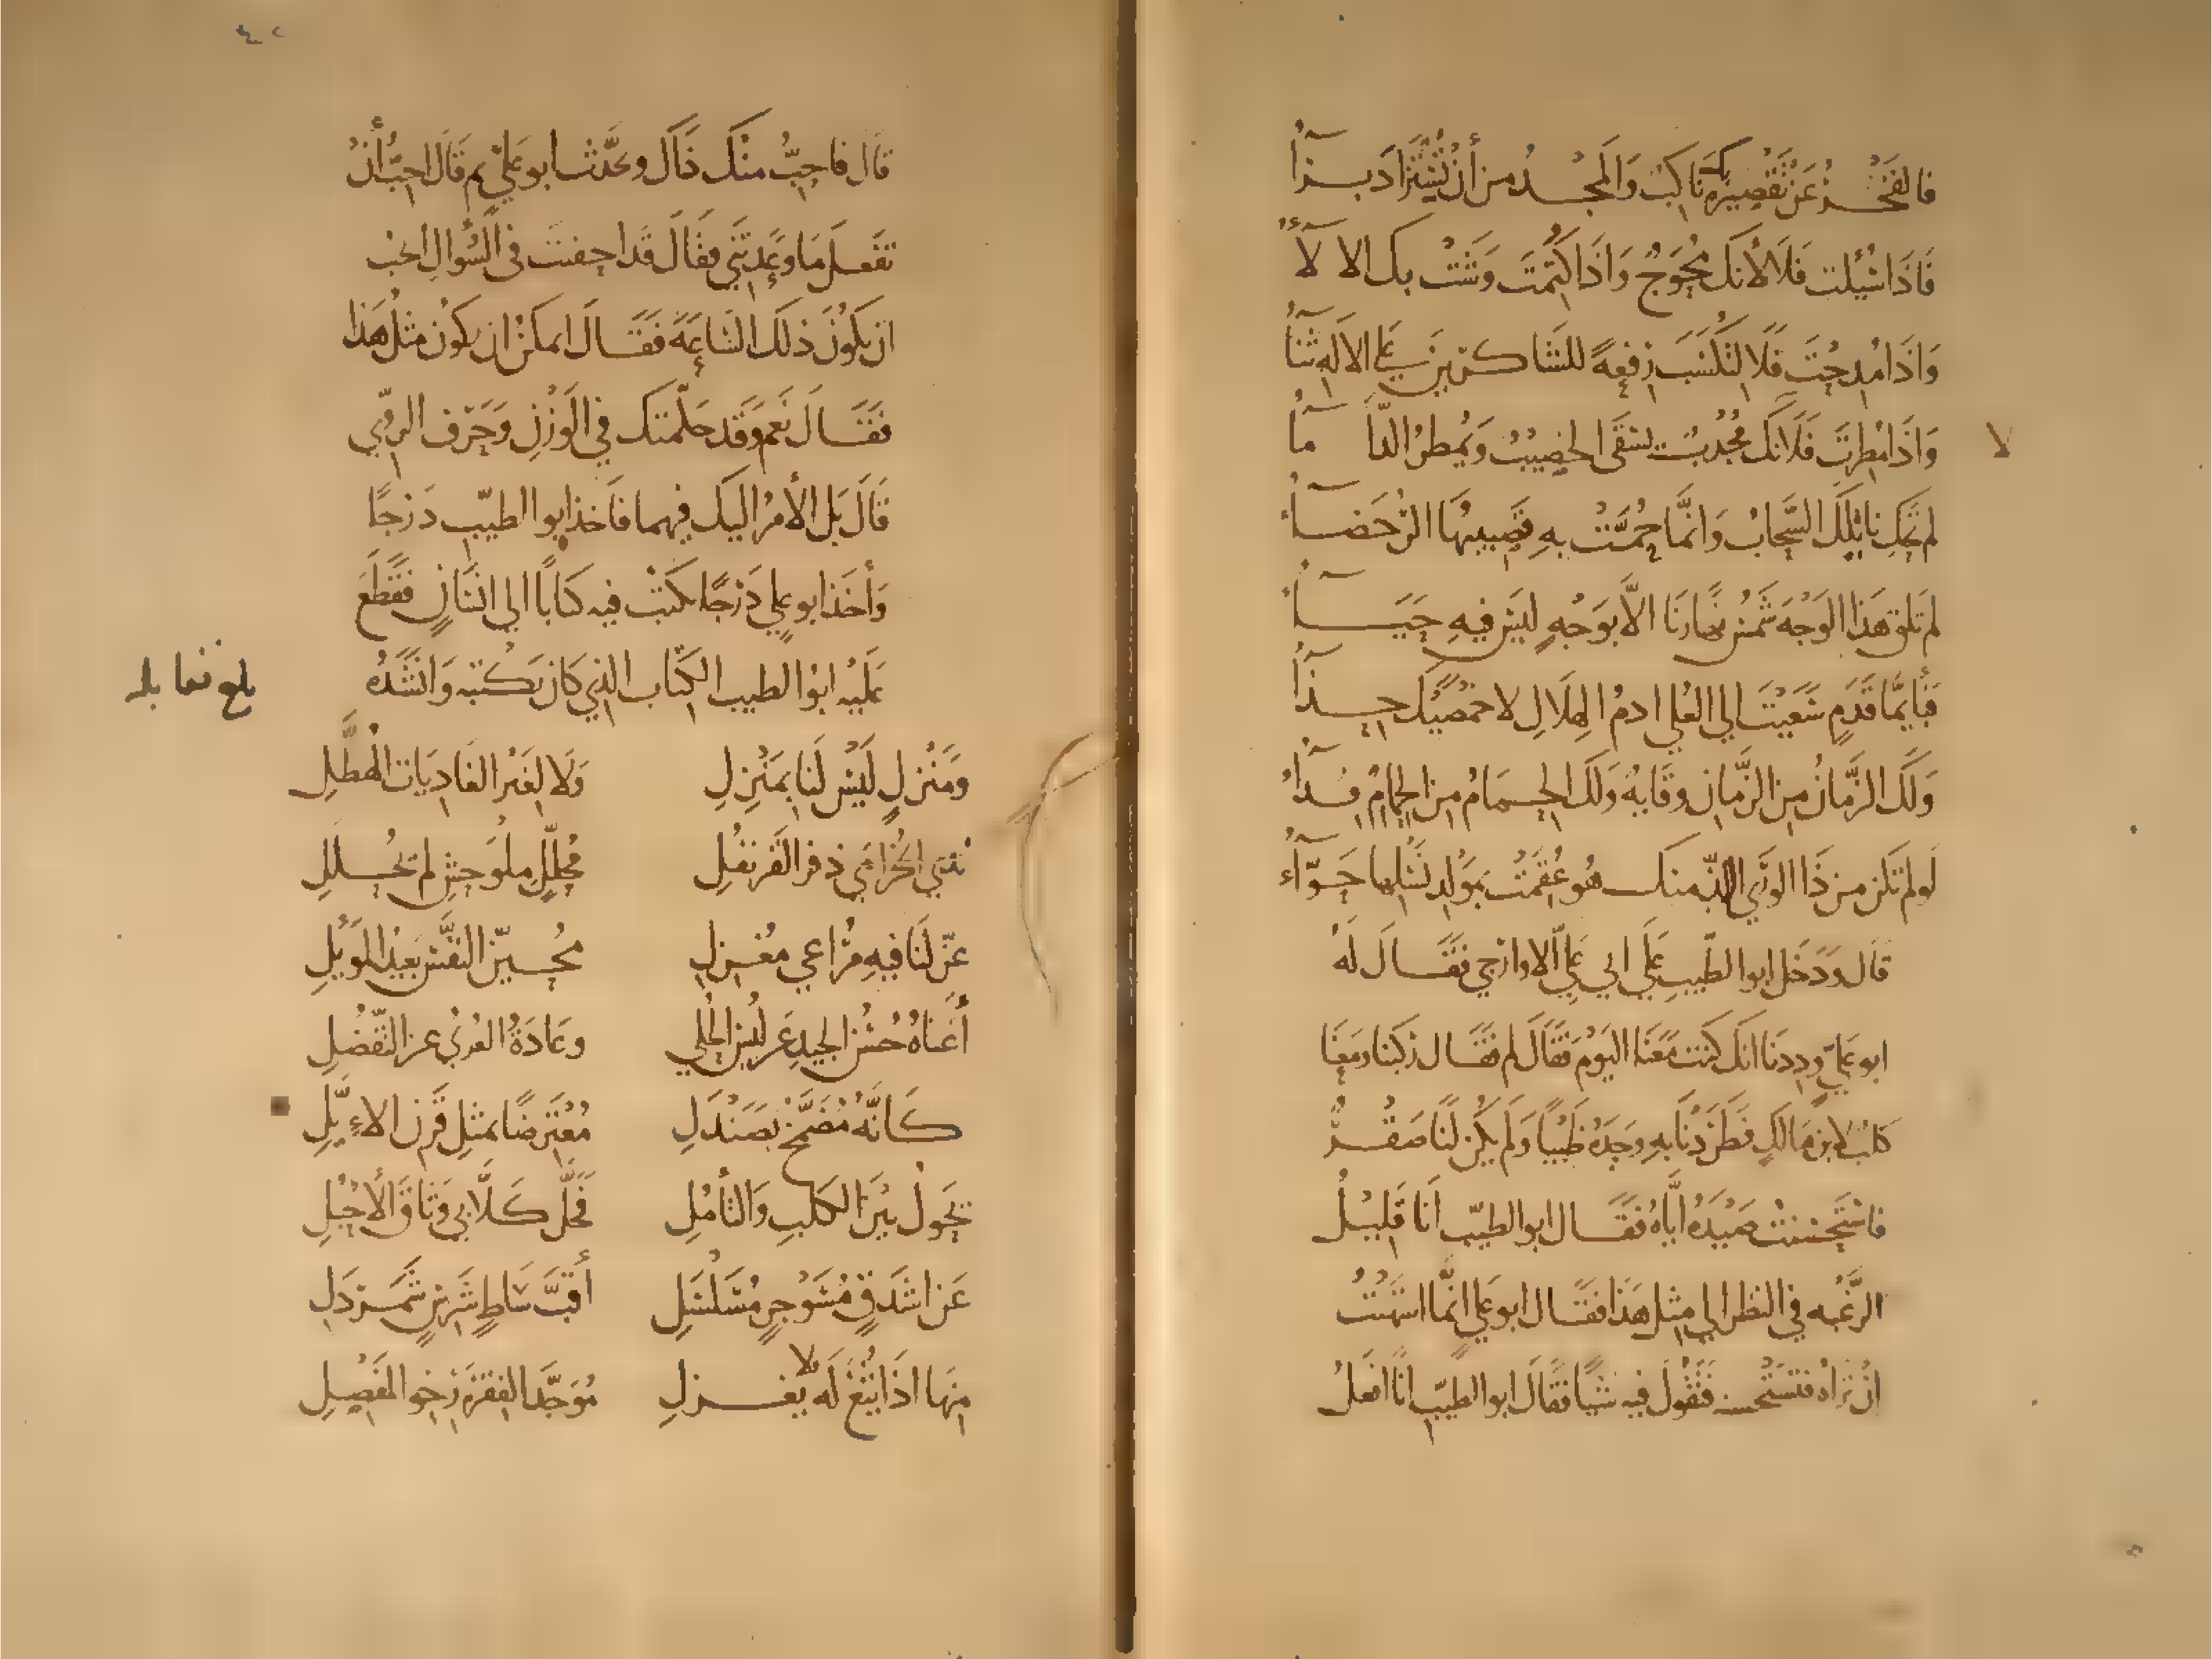 فالفَخْرُ عَن تَقْصِيرِهِ بكَ نَاكِبٌ وَالمَجْدُ مِن أَن تُسْتَزَادَ بَرَآءُ
فَاذَا سُئِلتَ فَلَا لأَنّكَ مُحْوِجٌ وَاذَا كُتِمْتَ وَشَتْ بِكَ الالَآءُ
وَاذَا مُدِحْتَ فَلَا لِتَكْسَبَ رِفْعةً للشَاكِرِينَ عَلى الالَهِ ثنَآءُ
وَاذَا مُطِرتَ فَلَا لانّكَ مُجْدِبٌ يُسْقَى الخَصِيبُ وَيُمطَرُ الدّأمَآءُ
لا
لم تَحْكِ نَائِلَكَ السَّحَابُ وَانَّمَا حُمَّتْ بِهِ فَصَبِيبُهَا الرُّحَضَآءُ
لم تَلقَ هَذَا الوَجْهَ شَمْسُ نَهارِنَا الَّا بوَجْهٍ لَيسَ فِيهِ حَيَآءُ
فَبِأَيِّمَا قَدَمٍ سَعَيْتَ الى العُلى ادمُ الهِلَالِ لاخمَصَيْكَ حِذَآءُ
وَلَكَ الزَّمَانُ مِن الزَّمَانِ وقَايةٌ وَلَكَ الحِمَامُ مِن الحِمَامِ فِدَآءُ
لَو لم تَكُن مِن ذَا الوَرَى اللذْ منكَ هُو عُقِمَتْ بمَوْلِدِ نَسْلِها حَوّآءُ
قَالَ وَدَخَلَ ابو الطّيب عَلَى ابي عَلىّ الاوارجي فقَالَ لَهُ
ابو عَلىّ وَدِدنَا انّكَ كُنتَ مَعَنَا اليَوْمَ فَقَالَ لم فقَالَ رَكبنَا ومَعَنَا
كَلبٌ لابنِ مَالكٍ فطَرَدنَا بهِ وَحدَهُ ظَبيًا وَلَم يَكُن لَنَا صَقْرٌ
فاسْتَحْسَنتُ صَيْدَهُ ايّاهُ فقَالَ ابو الطيّب أنَا قَلِيلُ
الرَّغْبه في النظر الى مِثل هَذَا فقَال ابو عَلى انَّمَا اشتَهَيْتُ
انْ تَراهُ فتَستَحسنه فَتَقُولَ فيه شَيًا فقَالَ ابو الطيّب انَا افعَلُ
قَالَ فاحِبُّ منكَ ذَاكَ وتحدَّثَ ابو عَلىّ ثم قَالَ احبُّ أنْ
تَفعَلَ مَا وعَدتَني فقَالَ قَد احفيتَ في السُّوَالِ اتحُب
ان يَكُونَ ذلكَ السَّاعَةَ فَقَالَ ايمكنُ ان يكُونَ مثلُ هَذَا
فَقَالَ نَعَم وَقَد حكّمتكَ في الوَزْنِ وَحَرْف الروّي
قَالَ بَلِ الأمرُ اليكَ فيهما فَاخذ ابو الطيّب دَرْجًا
وَأخَذ ابو عَلي دَرْجًا يكتبُ فيه كتَابًا الى انسَانٍ فَقَطَعَ
عَلَيْه ابُو الطيب الكِتَاب الذِي كان يَكتُبه وَانشَدَهُ
بلغ مقابله
ومَنْزلٍ لَيْسَ لَنَا بمَنْزِلِ وَلَا لِغَيْرِ الغَادِيَاتِ الهُطَّلِ
نَدِي الخُزَامَى ذفرِ القَرنفُلِ مُحَلَّلٍ مِلوَحشِ لم يُحَلَّلِ
عَنَّ لَنَا فيهِ مُرَاعي مُغْزِلِ مُحَيَّنُ النَفْسِ بَعِيدُ المَوْئِلِ
أَغنَاهُ حُسْنُ الجِيدِ عَن لُبْسِ الحُلي وعَادَةُ العُرْي عن التّفَضُّلِ
كَانّهُ مُضَمَّخٌ بصَنْدَلِ مُعْتَرِضًا بمثلِ قَرنِ الاءيَّلِ
يَحُولُ بَيْنَ الكَلبِ وَالتَأمُّلِ فَحَلَّ كَلَّابي وَثَاقَ الأحبُلِ
عَن اشدَقٍ مُسَوْجَرٍ مُسَلْسَلِ أَقَبَّ سَاطٍ شَرِسٍ شَمَرْدَلِ
مِنهَا اذَا يُثْغَ لَهُ لا يَغْزَلِ مُوَجَّدِ الفِقْرَةِ رَخْوِ المَفْصِلِ